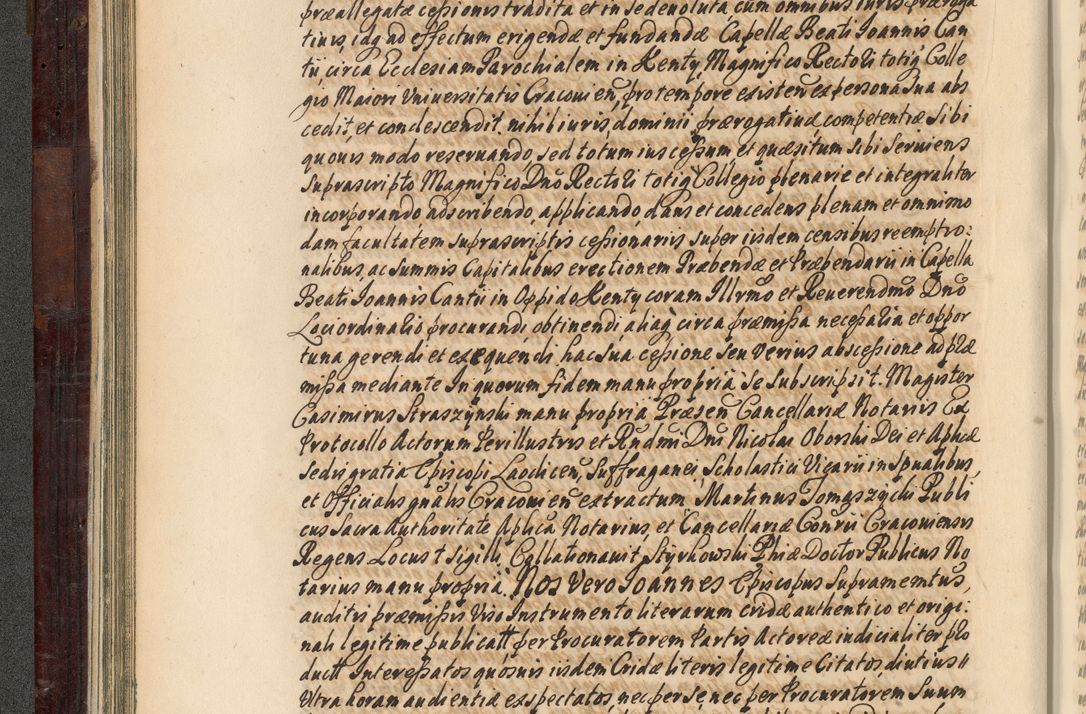 præallegatæ cessionis tradita et in se deuoluta cum omnibus iuris præroga
tiuis, eaq; ad effectum erigendæ et fundandæ Capellæ Beati Joannis Can
tii, circa Ecclesiam Parochialem in Kenty, Magnifico Rectori totiq; Colle
gio Maiori Vniuersitatis Cracouien̄, pro tempore existen̄ ex persona sua abs
cedit, et condescendit, nihil iuris, dominii, prærogatiuæ, competentiæ sibi
quouis modo reseruando, sed totum ius cessum, et quæsitum sibi seruiens
suprascripto Magnifico Dn̄o Rectori totiq; Collegio plenarie et integraliter
incorporando adscribendo, applicando, dans et concedens plenam et omnimo
dam facultatem suprascriptis cessionariis super iisdem censibus reemptio:
nalibus, ac summis Capitalibus erectionem Præbendæ et Præbendarii in Capella
Beati Joannis Cantii in Oppido Kenty coram Illrmo et Reuerendmo Dn̄o
Loci ordinario procurandi, obtinendi, aliaq; circa præmissa necessaria et oppor
tuna gerendi et exequendi, hac sua cessione seu verius abscessione ad præ
missa mediante In quorum fidem manu propria se subscripsit. Magister
Casimirus Straszynski manu propria Præsen̄ Cancellariæ Notariis Ex
Protocollo Actorum Perillustris et Rn̄dmi Dn̄i Nicolai Oborski Dei et Aplicæ
Sedis gratia Episcopi Laodicen̄, Suffraganei, Scholastici Vicarii in Spualibus,
et Officialis gn̄alis Cracouien̄ extractum Martinus Tomaszycki Publi
cus Sacra Authoritate Aplica Notarius, et Cancellariæ Con̄rii Cracouiensis
Regens Locus † sigilli, Collationauit Styrkowski Phiæ Doctor Publicus No
tarius manu propria. Nos Vero Joannes Episcopus supramemtus,
auditis præmissis viso Instrumento literarum cridæ authentico et origi:
nali legitime publicatt per Procuratorem Partis Actoreæ iudicialiter pro
ductt Interessatos quosuis iisdem Cridæ literis legitime Citatos, diutius
vltra horam audientiæ expectatos, nec per se, nec per Procuratorem suum